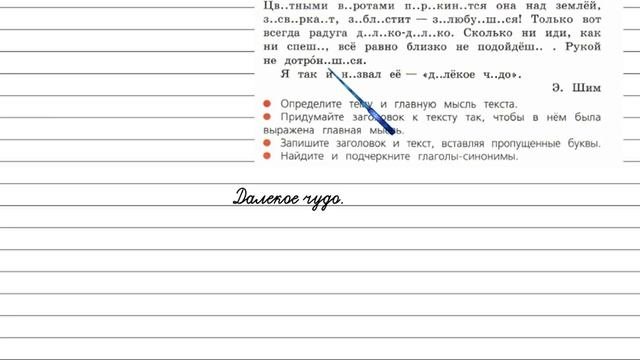 Цв..тными в..ротами п..р..кин..тся она над землёй,
з..св..рка..т, з..бл..стит — з..любу..ш..ся! Только вот
всегда радуга д..л..ко-д..л..ко. Сколько ни иди, как
ни спеш.., всё равно близко не подойдёш.. . Рукой
не дотро́н..ш..ся.
Я так и н..звал её — «д..лёкое ч..до».
Э. Шим
Определите тему и главную мысль текста.
Придумайте заголовок к тексту так, чтобы в нём была
выражена главная мысль.
Запишите заголовок и текст, вставляя пропущенные буквы.
Найдите и подчеркните глаголы-синонимы.
Далекое чудо.